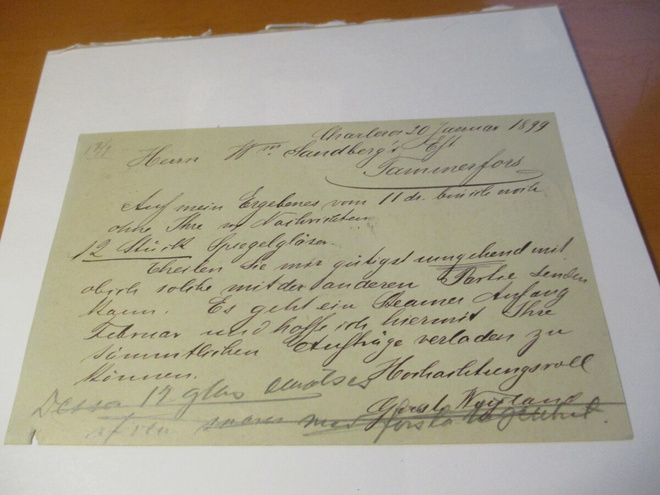 Charleroi 20 Januar 1899
Herrn Wm Sandberg's Eft
Tammerfors
Auf mein Ergebenes vom 11 ds. bin ich noch
ohne Ihre Nachrichten
12 Stück Spiegelgläser
Theilen Sie mir gütigst umgehend mit
ob ich solche mit der anderen Partie senden
kann. Es geht ein Steamer Anfang
Februar und hoffe ich hiermit Ihre
sämmtlichen Aufträge verladen zu
können. Hochachtungsvoll
Dessa 12 glas
snart med första